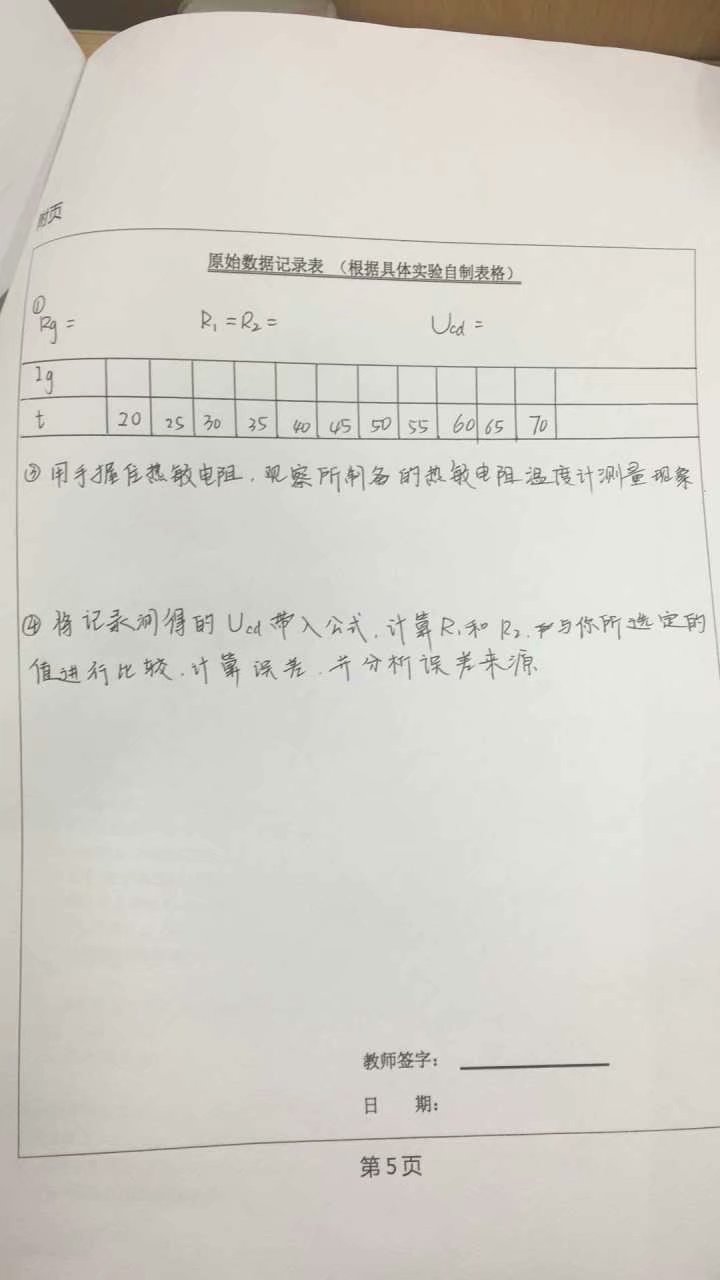 附页
原始数据记录表 （根据具体实验自制表格）
①
Rg =  R₁ = R₂ =  Ucd =
Ig
t 20 25 30 35 40 45 50 55 60 65 70
③ 用手握住热敏电阻，观察所制备的热敏电阻温度计测量现象
④ 将记录测得的 Ucd 带入公式，计算 R₁ 和 R₂，与你所选定的
值进行比较，计算误差，并分析误差来源
教师签字：
日 期：
第 5 页